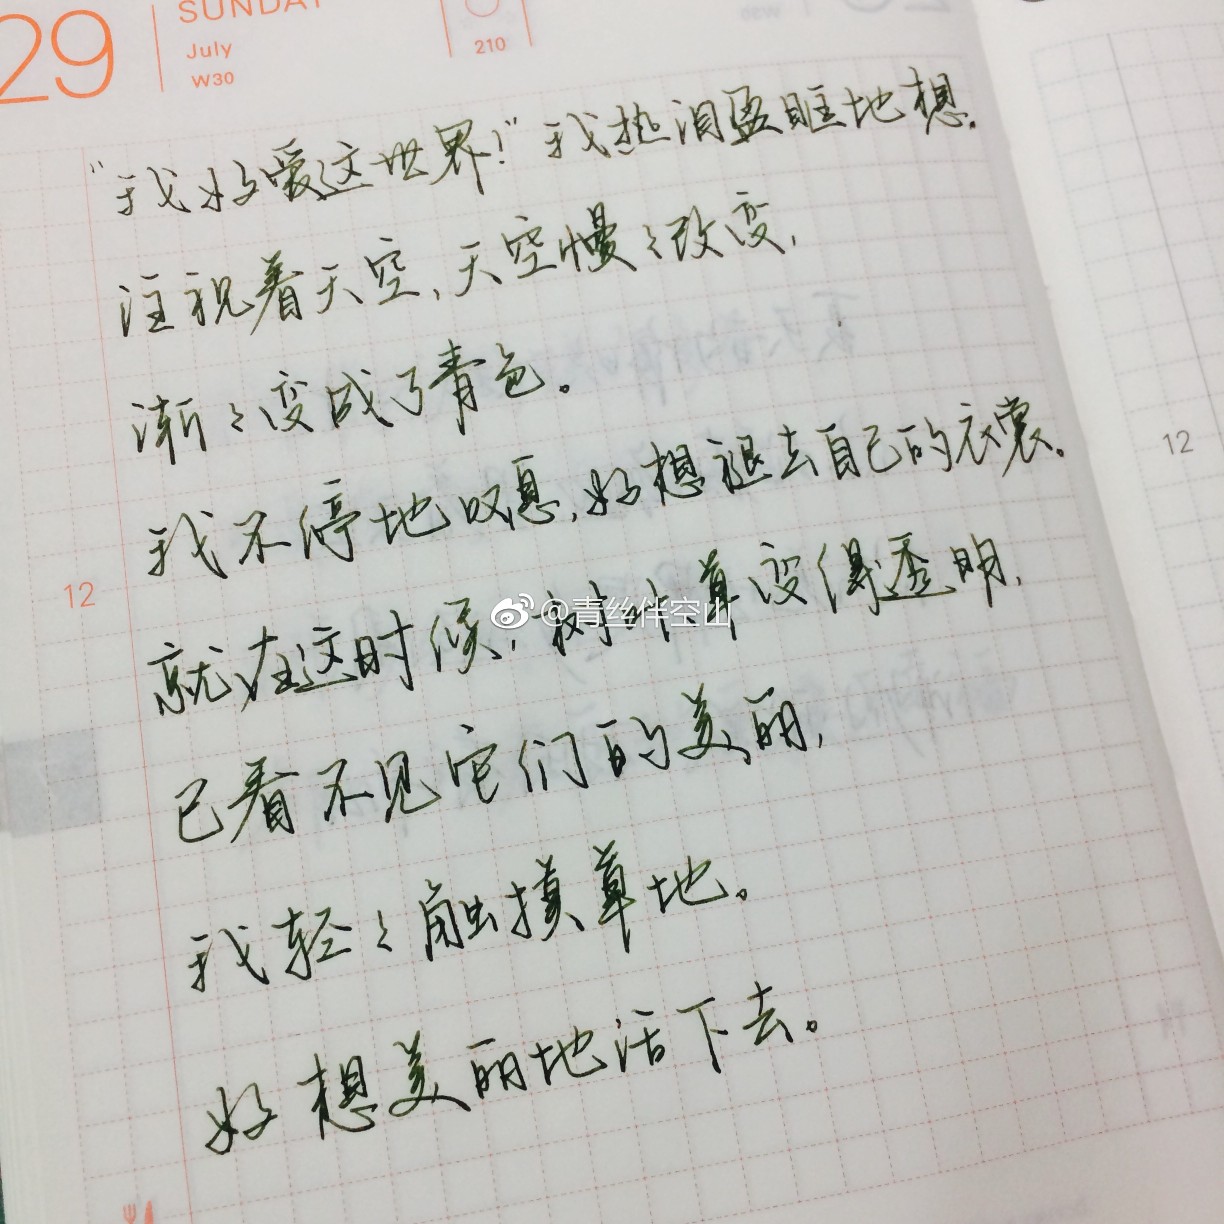 29
SUNDAY
July
W30
210
"我好爱这世界!"我热泪盈眶地想.
注视着天空,天空慢々改变,
渐々变成了青色。
我不停地叹息,好想褪去自己的衣裳。
12
12
@青丝伴空山
就在这时候,树叶草变得透明,
已看不见它们的美丽,
我轻々触摸草地。
好想美丽地活下去。